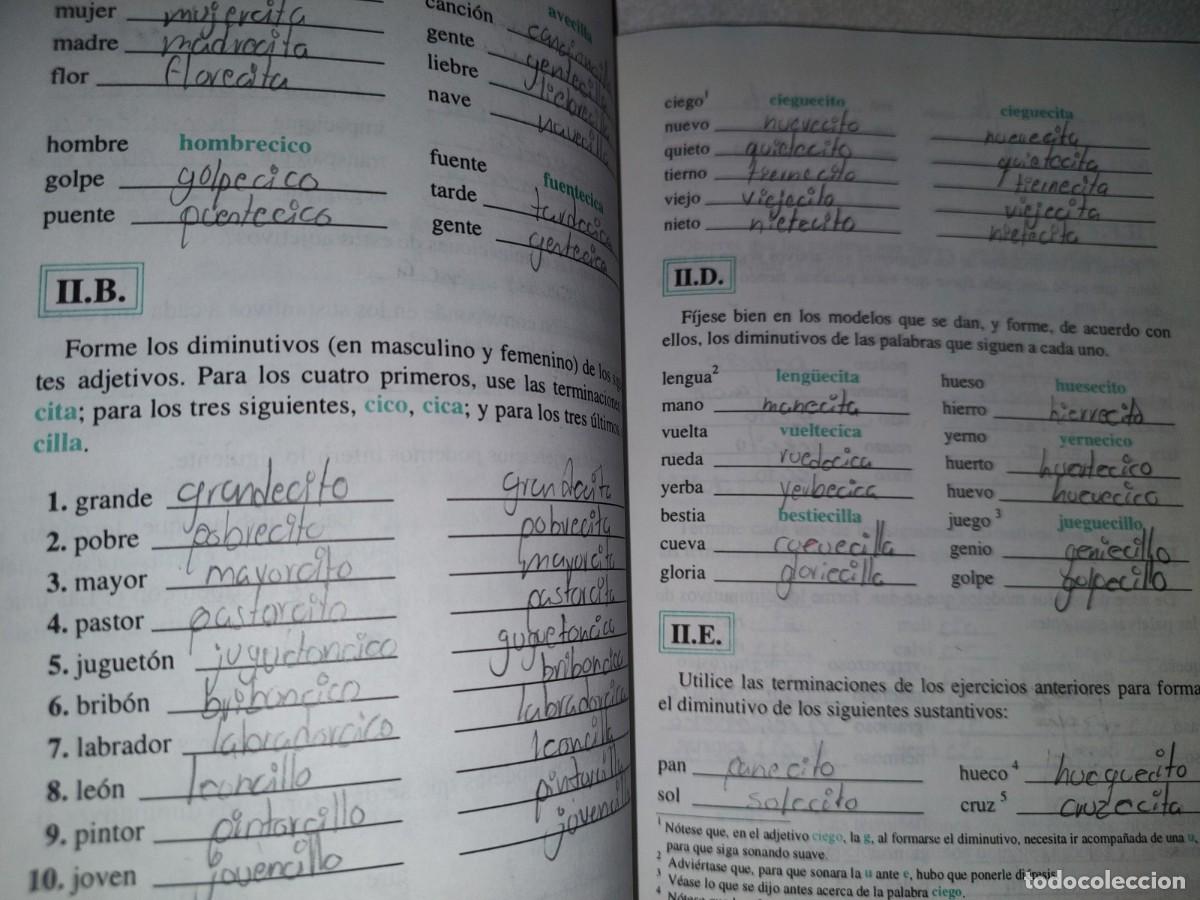 mujer mujercita
madre madrecita
flor florecita
canción avecilla
gente cancioncilla
liebre gentecilla
nave liebrecilla
navecilla
hombre hombrecico
golpe golpecico
puente puentecico
fuente fuentecica
tarde tardecica
gente gentecica
II.B.
Forme los diminutivos (en masculino y femenino) de los
tes adjetivos. Para los cuatro primeros, use las terminaciones
cita; para los tres siguientes, cico, cica; y para los tres últimos
cilla.
1. grande grandecito grandecita
2. pobre pobrecito pobrecita
3. mayor mayorcito mayorcita
4. pastor pastorcito pastorcita
5. juguetón juguetoncico guguetoncica
6. bribón briboncico briboncica
7. labrador labradorcico labradorcica
8. león leoncillo leoncilla
9. pintor pintorcillo pintorcilla
10. joven jovencillo jovencilla
ciego1 cieguecito cieguecita
nuevo nuevecito nuevecita
quieto quietecito quietecita
tierno tiernecito tiernecita
viejo viejecito viejecita
nieto nietecito nietecita
II.D.
Fíjese bien en los modelos que se dan, y forme, de acuerdo con
ellos, los diminutivos de las palabras que siguen a cada uno.
lengua2 lengüecita hueso huesecito
mano manecita hierro hierrecito
vuelta vueltecica yerno yernecico
rueda ruedecica huerto huertecico
yerba yerbecica huevo huevecico
bestia bestiecilla juego3 jueguecillo
cueva cuevecilla genio geniecillo
gloria gloriecilla golpe golpecillo
II.E.
Utilice las terminaciones de los ejercicios anteriores para forma
el diminutivo de los siguientes sustantivos:
pan panecito hueco4 huequecito
sol solecito cruz5 cruzecita
1 Nótese que, en el adjetivo ciego, la g, al formarse el diminutivo, necesita ir acompañada de una u,
para que siga sonando suave.
2 Adviértase que, para que sonara la u ante e, hubo que ponerle diéresis
3 Véase lo que se dijo antes acerca de la palabra ciego.
4
todocoleccion